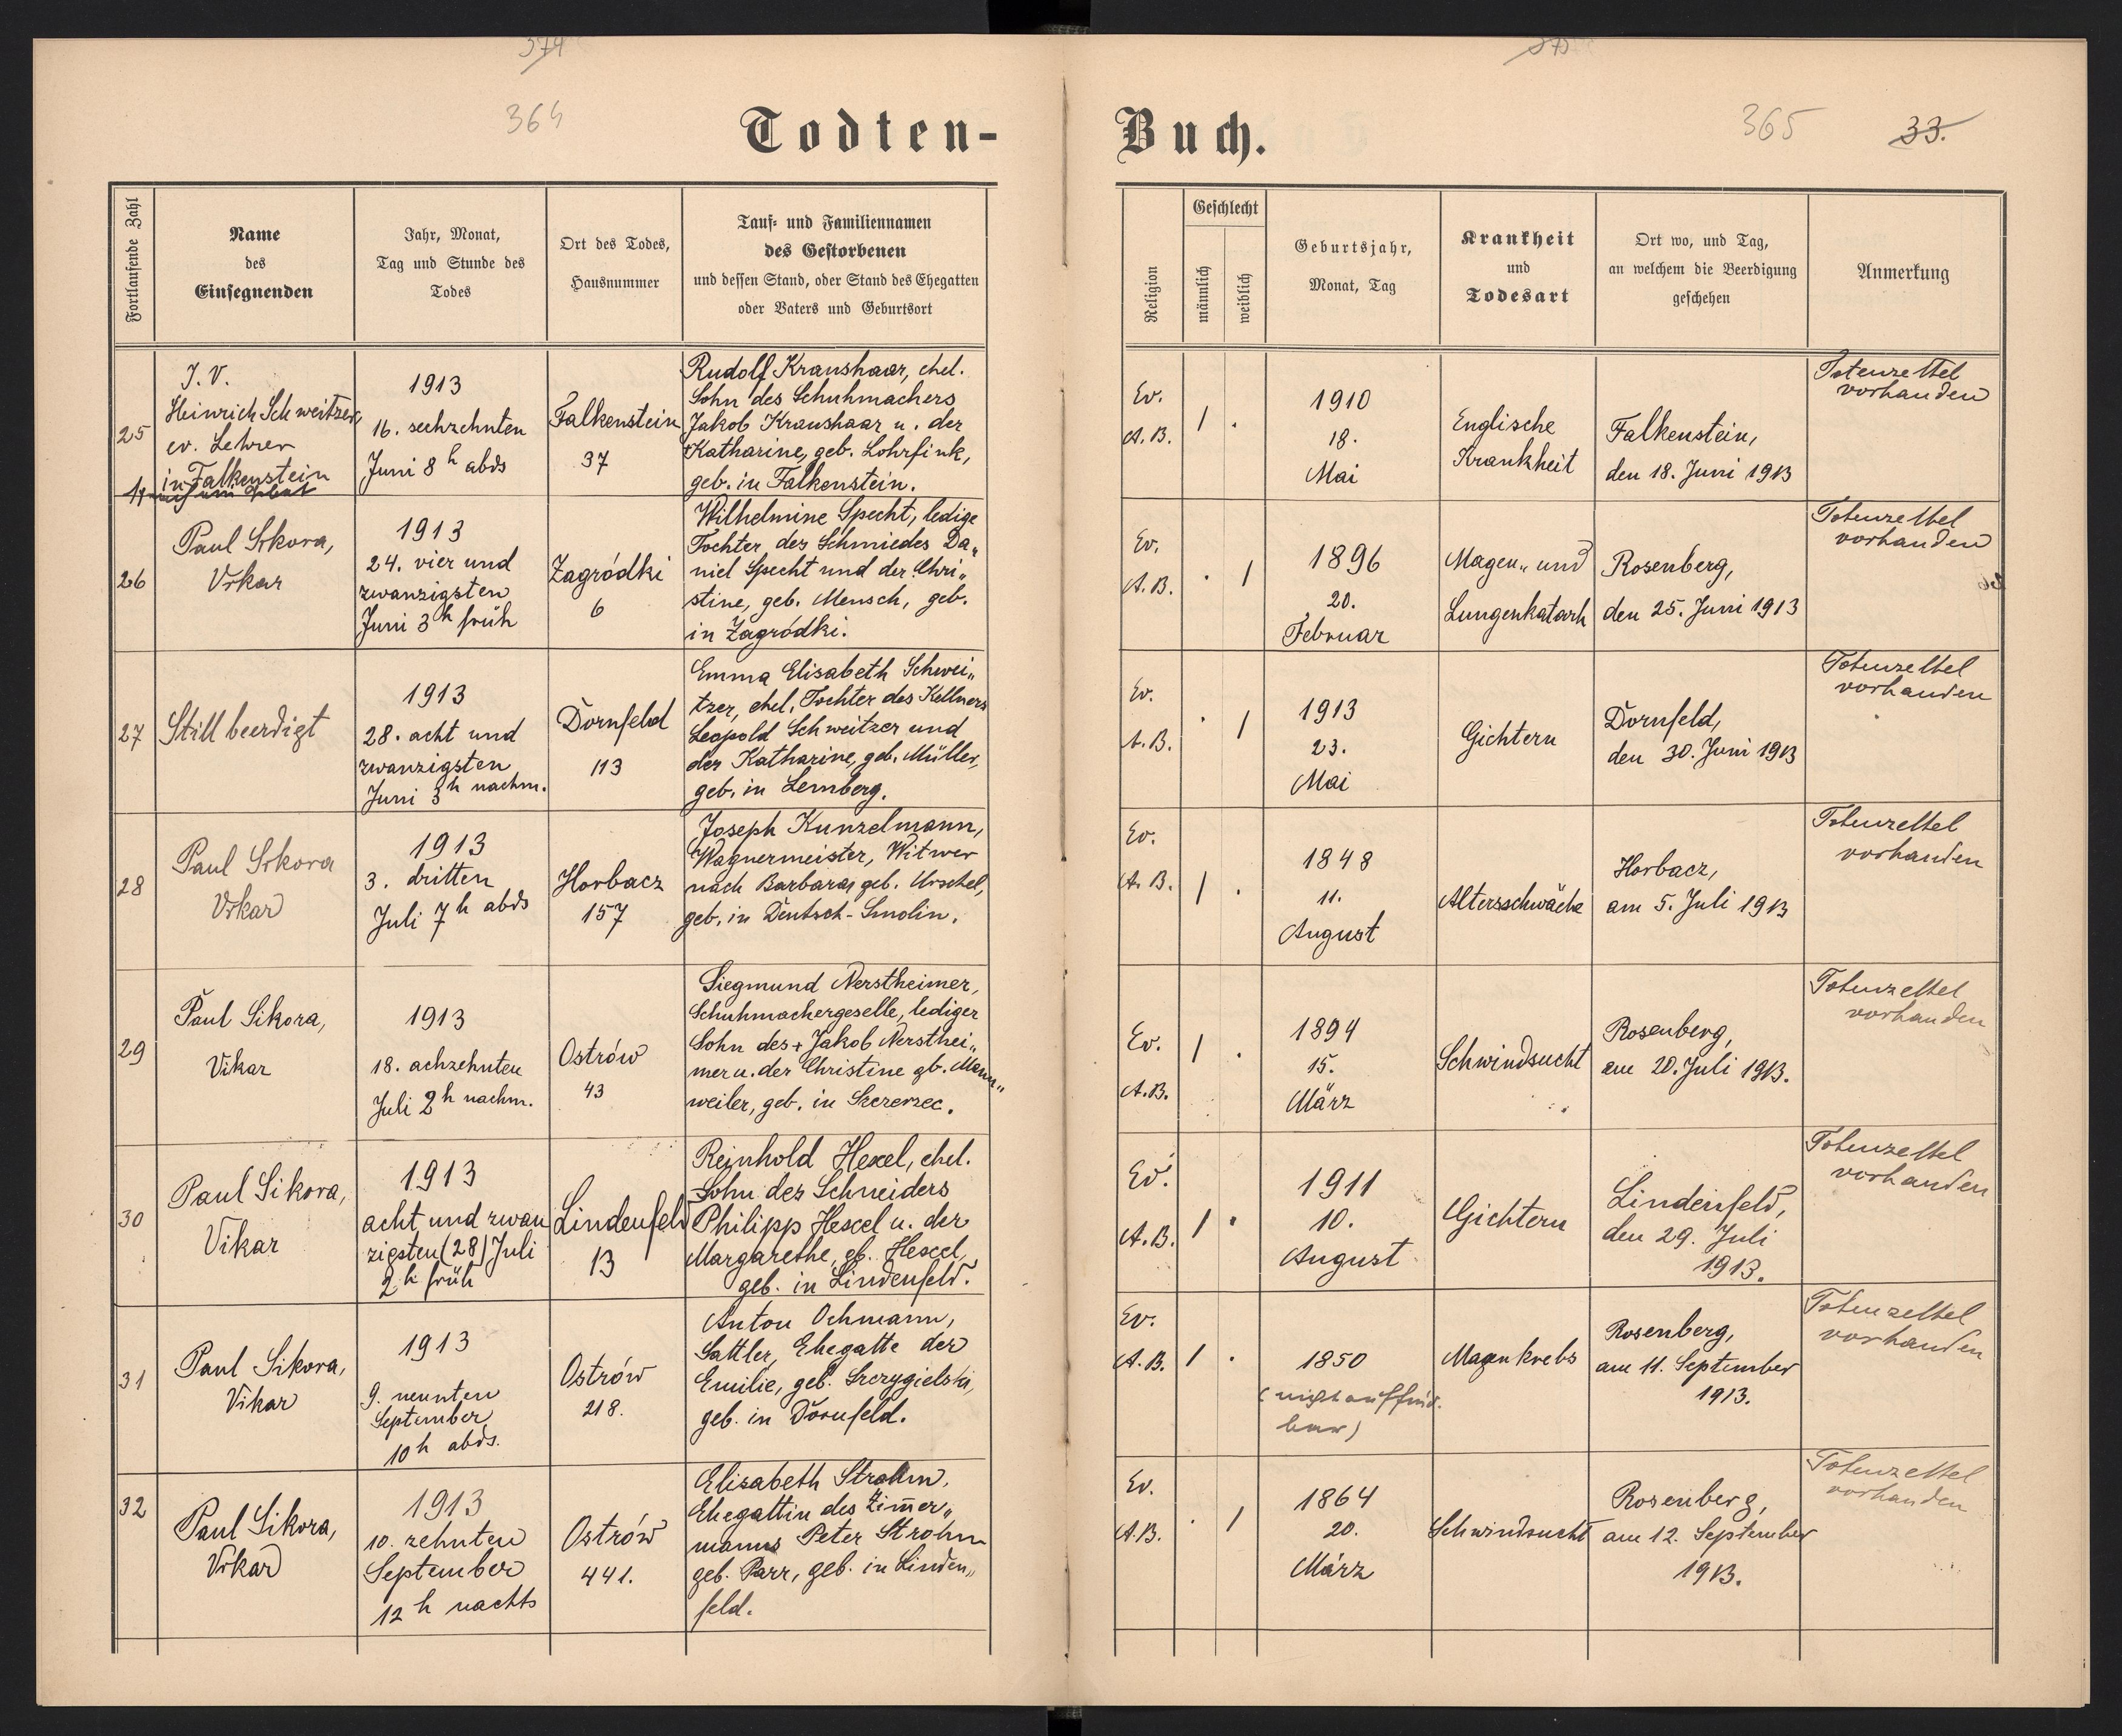 374
364
Todten-
Fortlaufende Zahl
Name
des
Einsegnenden
Jahr, Monat,
Tag und Stunde des
Todes
Ort des Todes,
Hausnummer
Tauf- und Familiennamen
des Gestorbenen
und dessen Stand, oder Stand des Ehegatten
oder Vaters und Geburtsort
25
J. V.
Heinrich Schweitzer,
ev. Lehrer
in Falkenstein
1913
16. sechzehnten
Juni 8 h abds
Falkenstein
37
Rudolf Kraushaar, ehel.
Sohn des Schuhmachers
Jakob Kraushaar u. der
Katharine, geb. Lohrfink,
geb. in Falkenstein.
26
Paul Sikora,
Vikar
1913
24. vier und
zwanzigsten
Juni 3 h früh
Zagródki
6
Wilhelmine Specht, ledige
Tochter des Schmiedes Da„
niel Specht und der Chri„
stine, geb. Mensch, geb.
in Zagródki.
27
Still beerdigt
1913
28. acht und
zwanzigsten
Juni 3 h nachm.
Dornfeld
113
Emma Elisabeth Schwei„
tzer, ehel. Tochter des Kellners
Leopold Schweitzer und
der Katharine, geb. Müller,
geb. in Lemberg.
28
Paul Sikora
Vikar
1913
3. dritten
Juli 7 h abds
Horbacz
157
Joseph Kunzelmann,
Wagnermeister, Witwer
nach Barbara, geb. Urschel,
geb. in Deutsch-Smolin.
29
Paul Sikora,
Vikar
1913
18. achzehnten
Juli 2 h nachm.
Ostrów
43
Siegmund Nerstheimer,
Schuhmachergeselle, lediger
Sohn des + Jakob Nersthei„
mer u. der Christine gb. Mann„
weiler, geb. in Szczerzec.
30
Paul Sikora,
Vikar
1913
acht und zwan
zigsten (28) Juli
2 h früh
Lindenfeld
13
Reinhold Hexel, ehel.
Sohn des Schneiders
Philipp Hexel u. der
Margarethe, gb. Hexel,
geb. in Lindenfeld.
31
Paul Sikora,
Vikar
1913
9. neunten
September
10 h abds.
Ostrów
218.
Anton Ochmann,
Sattler, Ehegatte der
Emilie, geb. Szczygielski,
geb. in Dornfeld.
32
Paul Sikora,
Vikar
1913
10. zehnten
September
12 h nachts
Ostrów
441.
Elisabeth Strohm,
Ehegattin des Zimer„
manns Peter Strohm
geb. Parr, geb. in Linden„
feld.
375
365
33.
Buch.
Religion
Geschlecht
männlich
weiblich
Geburtsjahr,
Monat, Tag
Krankheit
und
Todesart
Ort wo, und Tag,
an welchem die Beerdigung
geschehen
Anmerkung
Ev.
A. B.
1910
18.
Mai
Englische
Krankheit
Falkenstein,
den 18. Juni 1913
Totenzettel
vorhanden
Ev.
A. B.
1896
20.
Februar
Magen„ und
Lungenkatarh
Rosenberg,
den 25. Juni 1913
Totenzettel
vorhanden
Ev.
A. B.
1913
23.
Mai
Gichtern
Dornfeld,
den 30. Juni 1913
Totenzettel
vorhanden
Ev.
A. B.
1848
11.
August
Altersschwäche
Horbacz,
am 5. Juli 1913
Totenzettel
vorhanden
Ev.
A. B.
1894
15.
März
Schwindsucht
Rosenberg,
am 20. Juli 1913.
Totenzettel
vorhanden
Ev.
A. B.
1911
10.
August
Gichtern
Lindenfeld,
den 29. Juli
1913.
Totenzettel
vorhanden
Ev.
A. B.
1850
(nicht auffind-
bar)
Magenkrebs
Rosenberg,
am 11. September
1913.
Totenzettel
vorhanden
Ev.
A. B.
1864
20.
März
Schwindsucht
Rosenberg,
am 12. September
1913.
Totenzettel
vorhanden